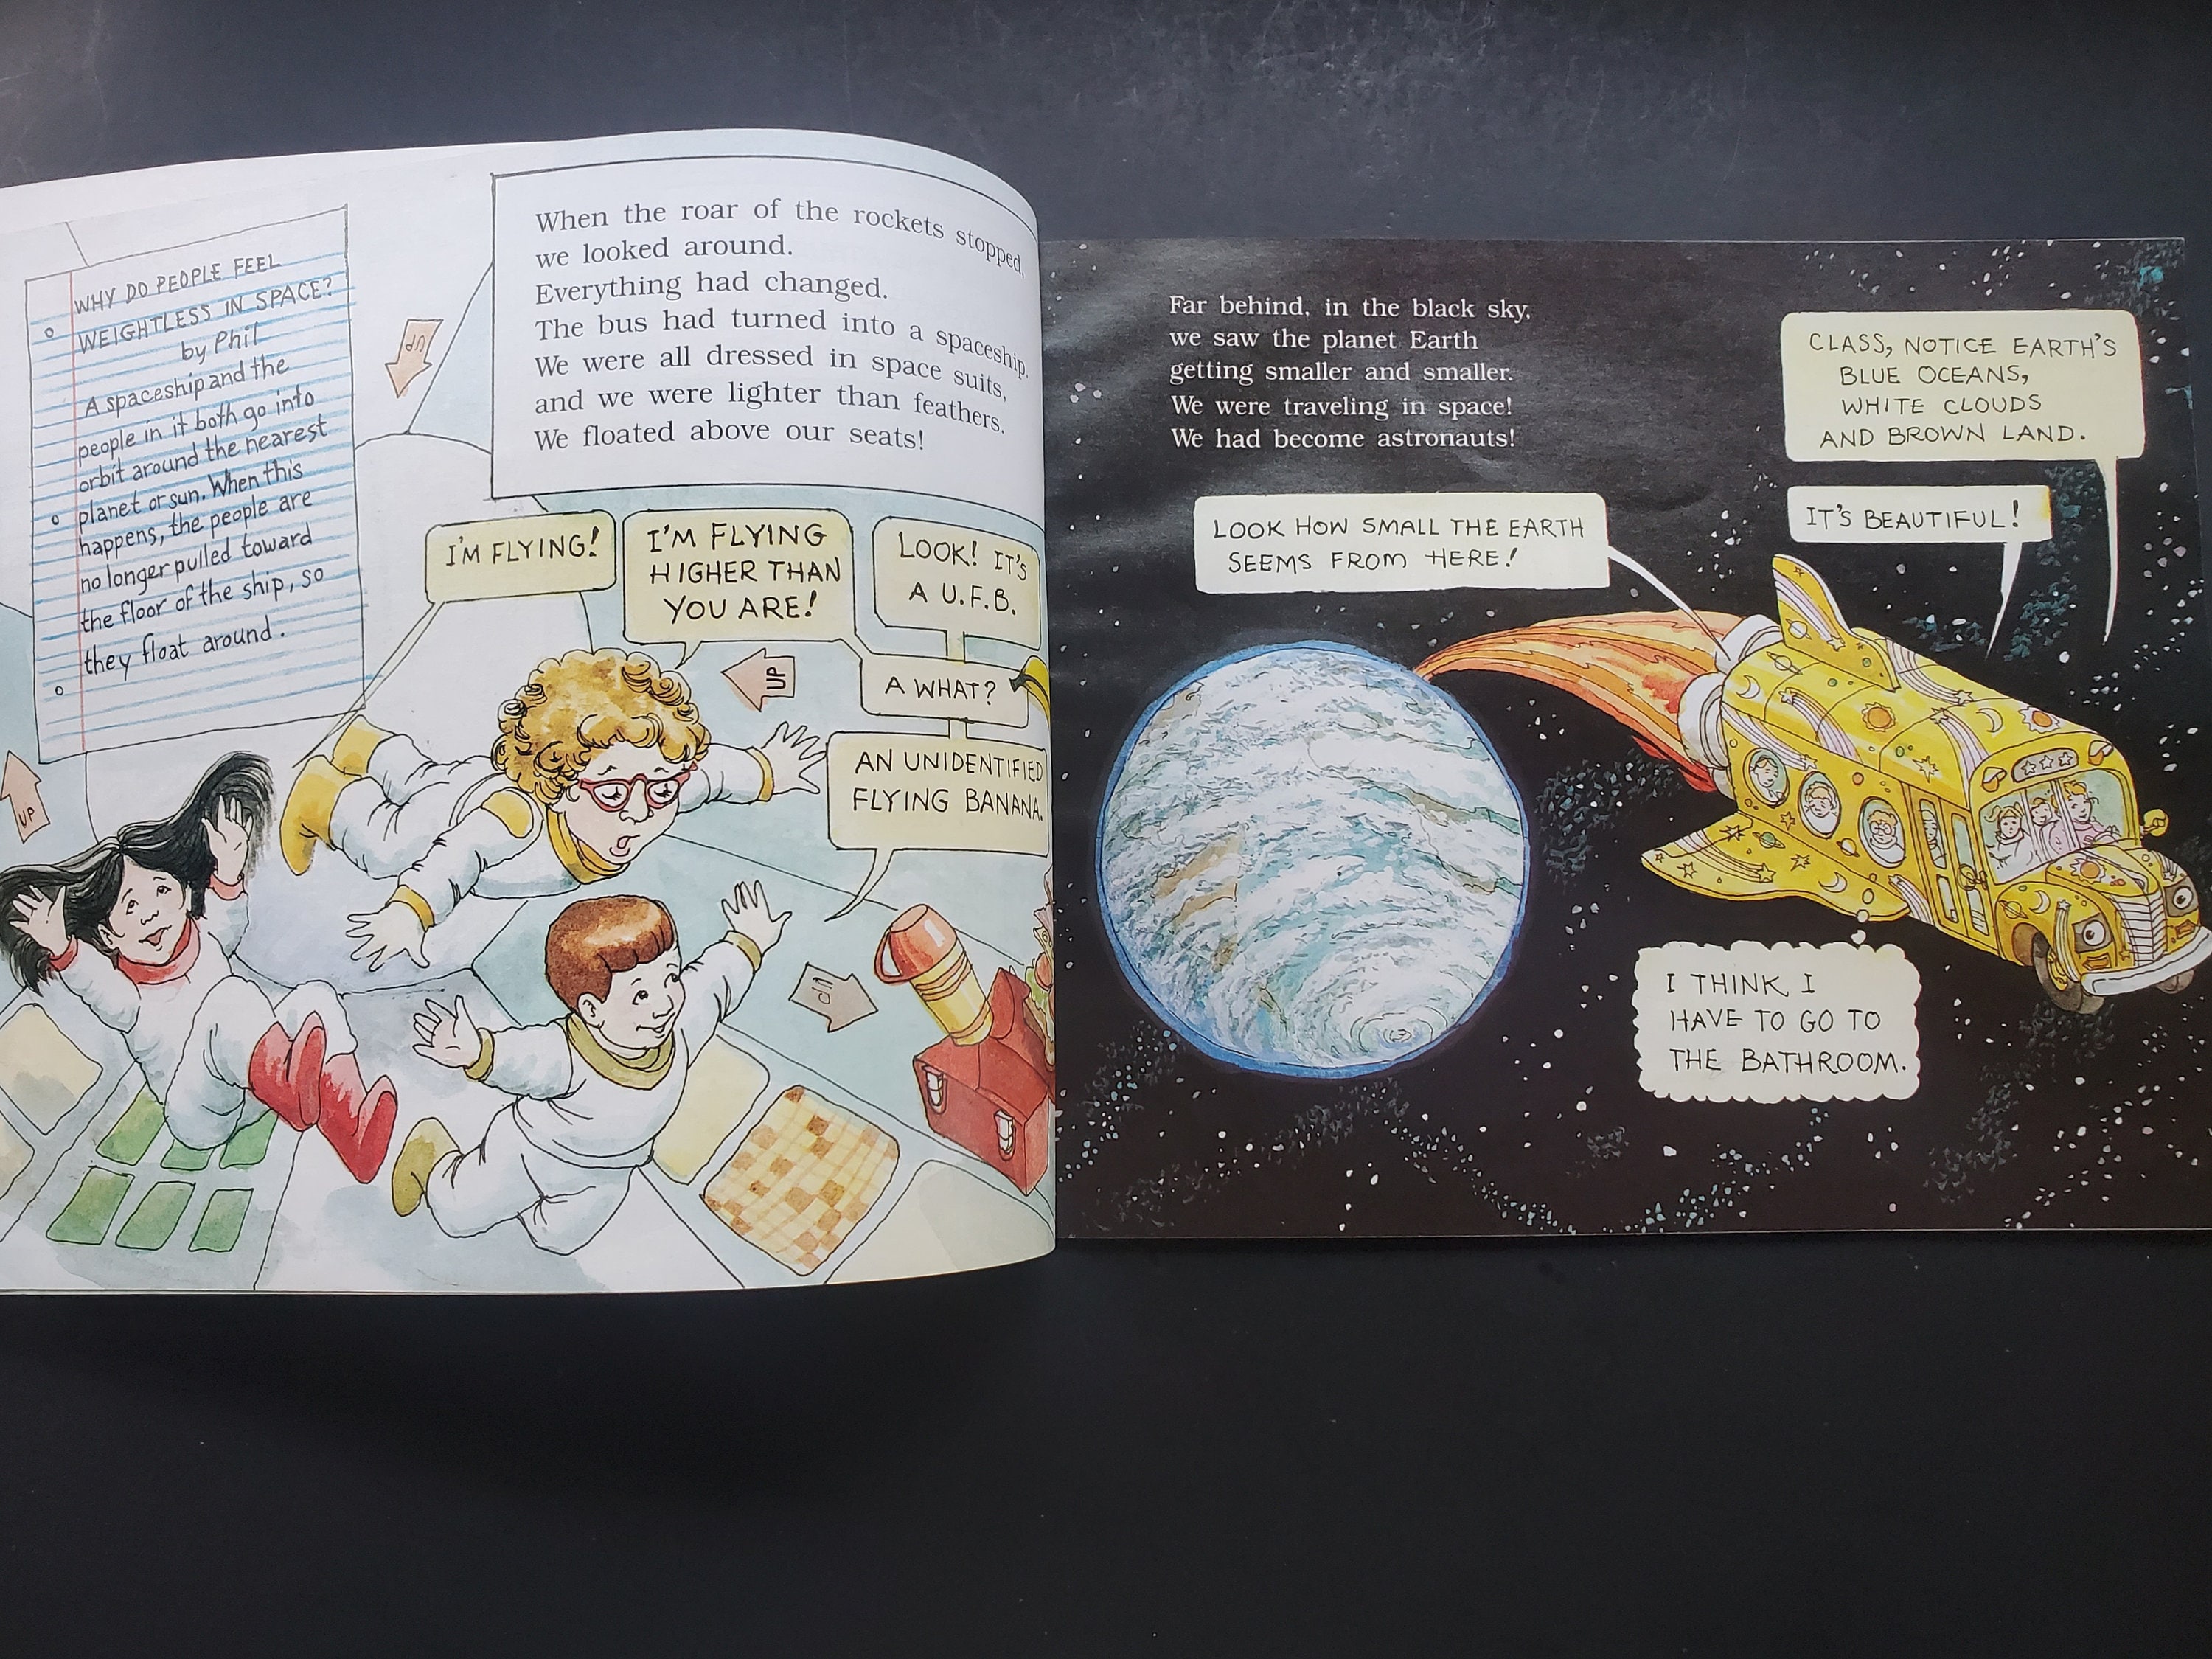 WHY DO PEOPLE FEEL
WEIGHTLESS IN SPACE?
by Phil
A spaceship and the
people in it both go into
orbit around the nearest
planet or sun. When this
happens, the people are
no longer pulled toward
the floor of the ship, so
they float around.
When the roar of the rockets stopped,
we looked around.
Everything had changed.
The bus had turned into a spaceship.
We were all dressed in space suits,
and we were lighter than feathers.
We floated above our seats!
UP
I'M FLYING!
I'M FLYING
HIGHER THAN
YOU ARE!
LOOK! IT'S
A U.F.B.
A WHAT?
AN UNIDENTIFIED
FLYING BANANA.
UP
UP
UP
Far behind, in the black sky,
we saw the planet Earth
getting smaller and smaller.
We were traveling in space!
We had become astronauts!
CLASS, NOTICE EARTH'S
BLUE OCEANS,
WHITE CLOUDS
AND BROWN LAND.
LOOK HOW SMALL THE EARTH
SEEMS FROM HERE!
IT'S BEAUTIFUL!
I THINK I
HAVE TO GO TO
THE BATHROOM.